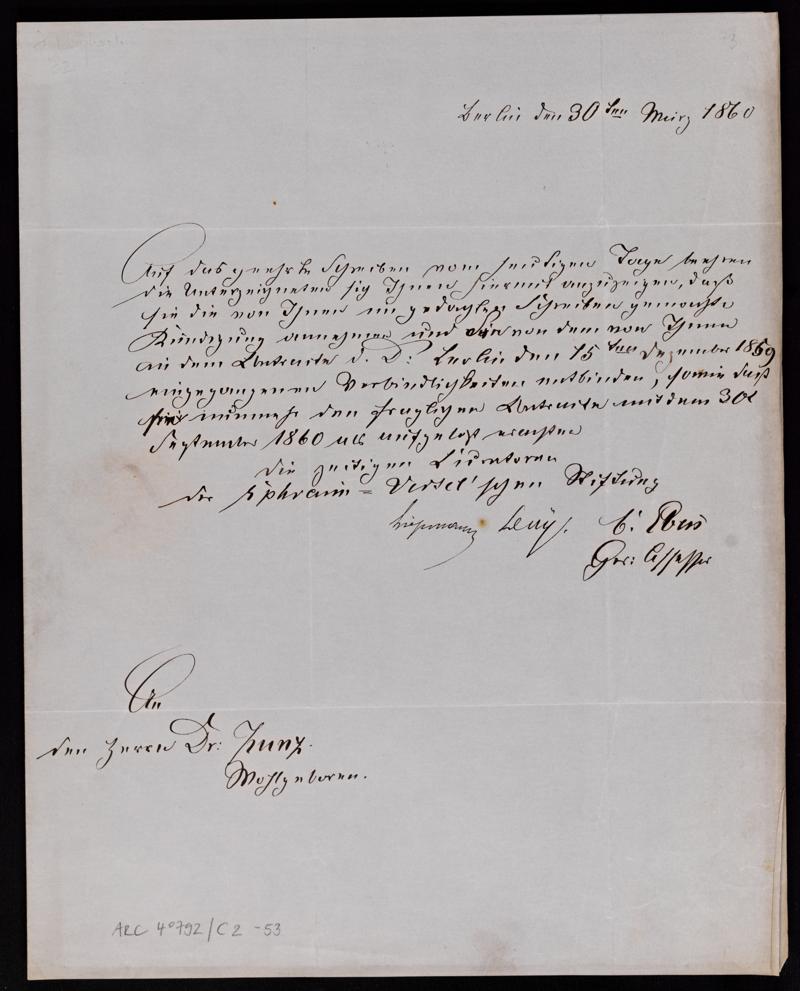 Berlin den 30ten März 1860
Auf das geehrte Schreiben vom heutigen Tage beehren
die Unterzeichneten sich Ihnen hiermit anzuzeigen, daß
sie die von Ihnen im gedachten Schreiben gemachte
Kündigung annehmen und Sie von dem von Ihnen
in dem Contracte d. D: Berlin den 15ten Dezember 1859
eingegangenen Verbindlichkeiten entbinden, sowie daß
sie nunmehr den fraglichen Contract mit dem 30t
September 1860 als aufgelöst erachten
die zeitigen Curatoren
der Ephraim=Veitel'schen Stiftung
Liepmann Levy.
Ger: Assessor
An
den Herrn Dr: Zunz.
Wohlgeboren.
ARC 4°792/C2-53